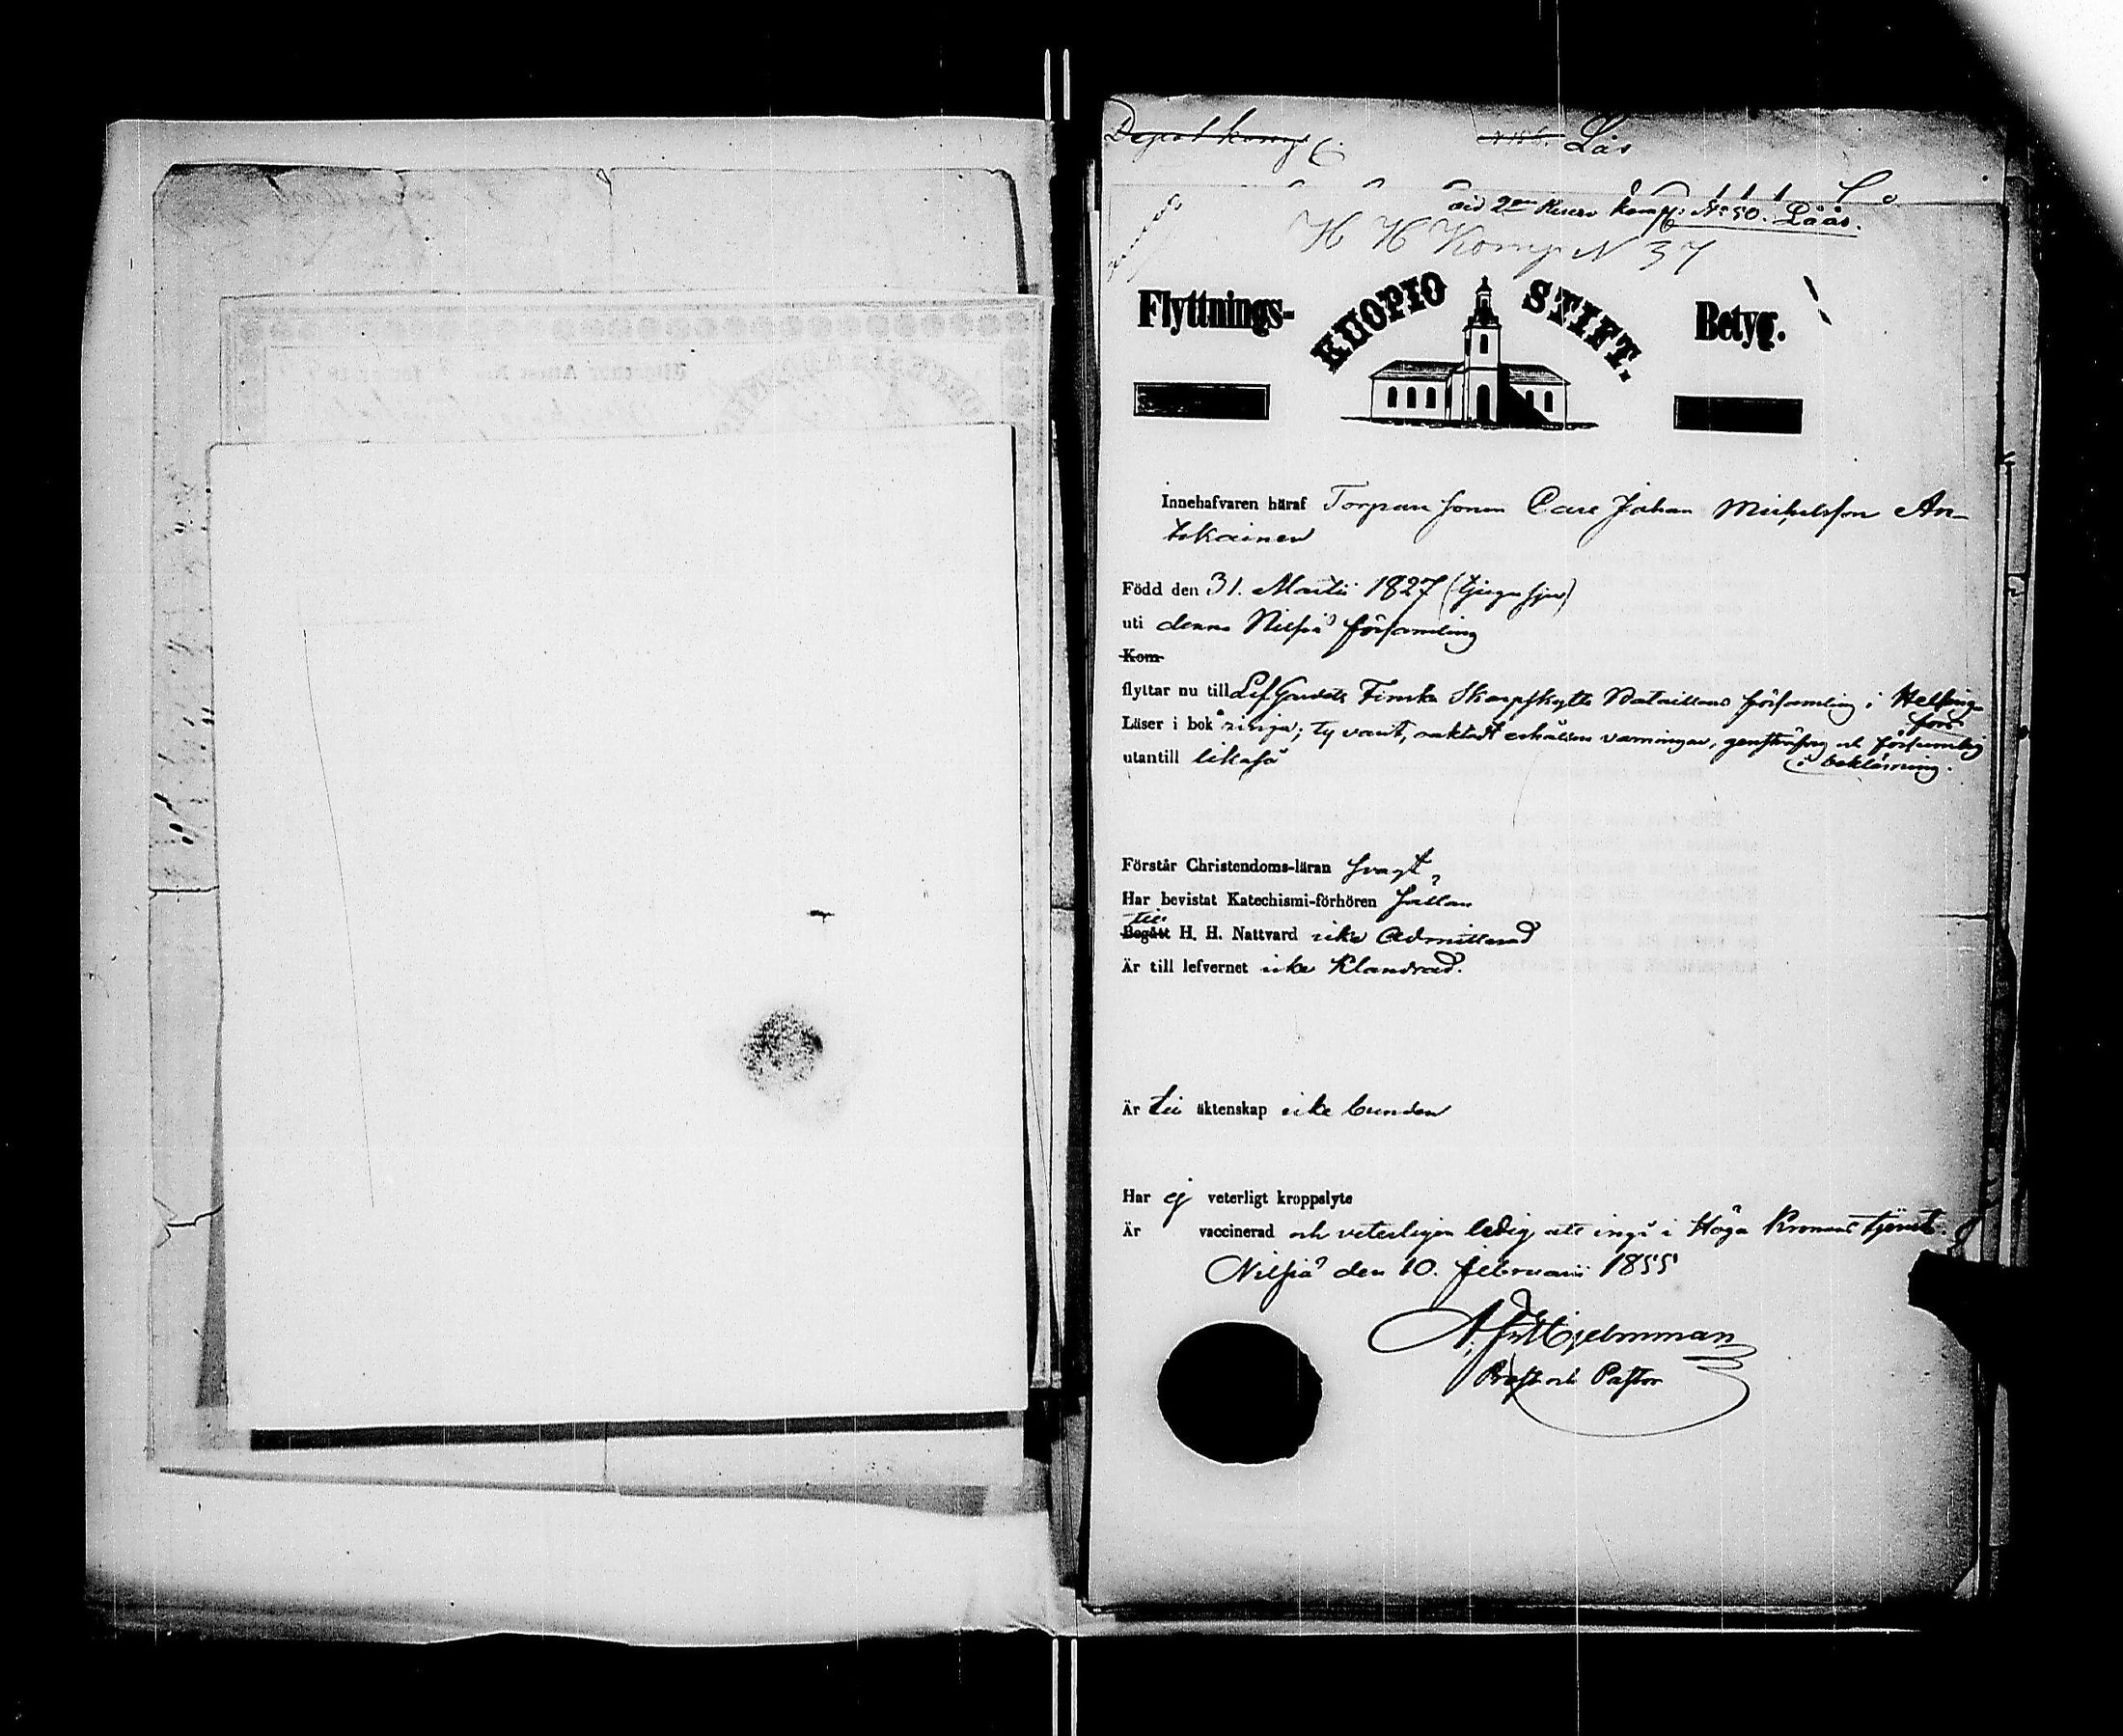 Depot komp
Lås
vid 2dra Reserv Komp: No 50. Låås.
H H Komp N 37
Flyttnings-
KUOPIO STIFT.
Betyg.
Innehafvaren häraf Torpare sonen Carl Johan Michelsson An-
tikainen
Född den 31. Martii 1827 (tjugu sju)
uti denna Nilsiä församling
Kom
flyttar nu till Lif Gardets Finska Skarpskytte Bataillons församling i Helsing-
fors
Läser i bok ringa; ty varit, oaktadt erhållna varningar, gensträfvig och försumlig
i boklärning.
utantill likaså
Förstår Christendoms-läran svagt,
Har bevistat Katechismi-förhören sällan
till
Begått H. H. Nattvard icke admitterad
Är till lefvernet icke klandrad.
Är till äktenskap icke bunden
Har ej veterligt kroppslyte
Är vaccinerad och veterligen ledig att ingå i Höga Kronans tjenst.
Nilsiä den 10. Februarii 1855
Hjelmman
Prost och Pastor